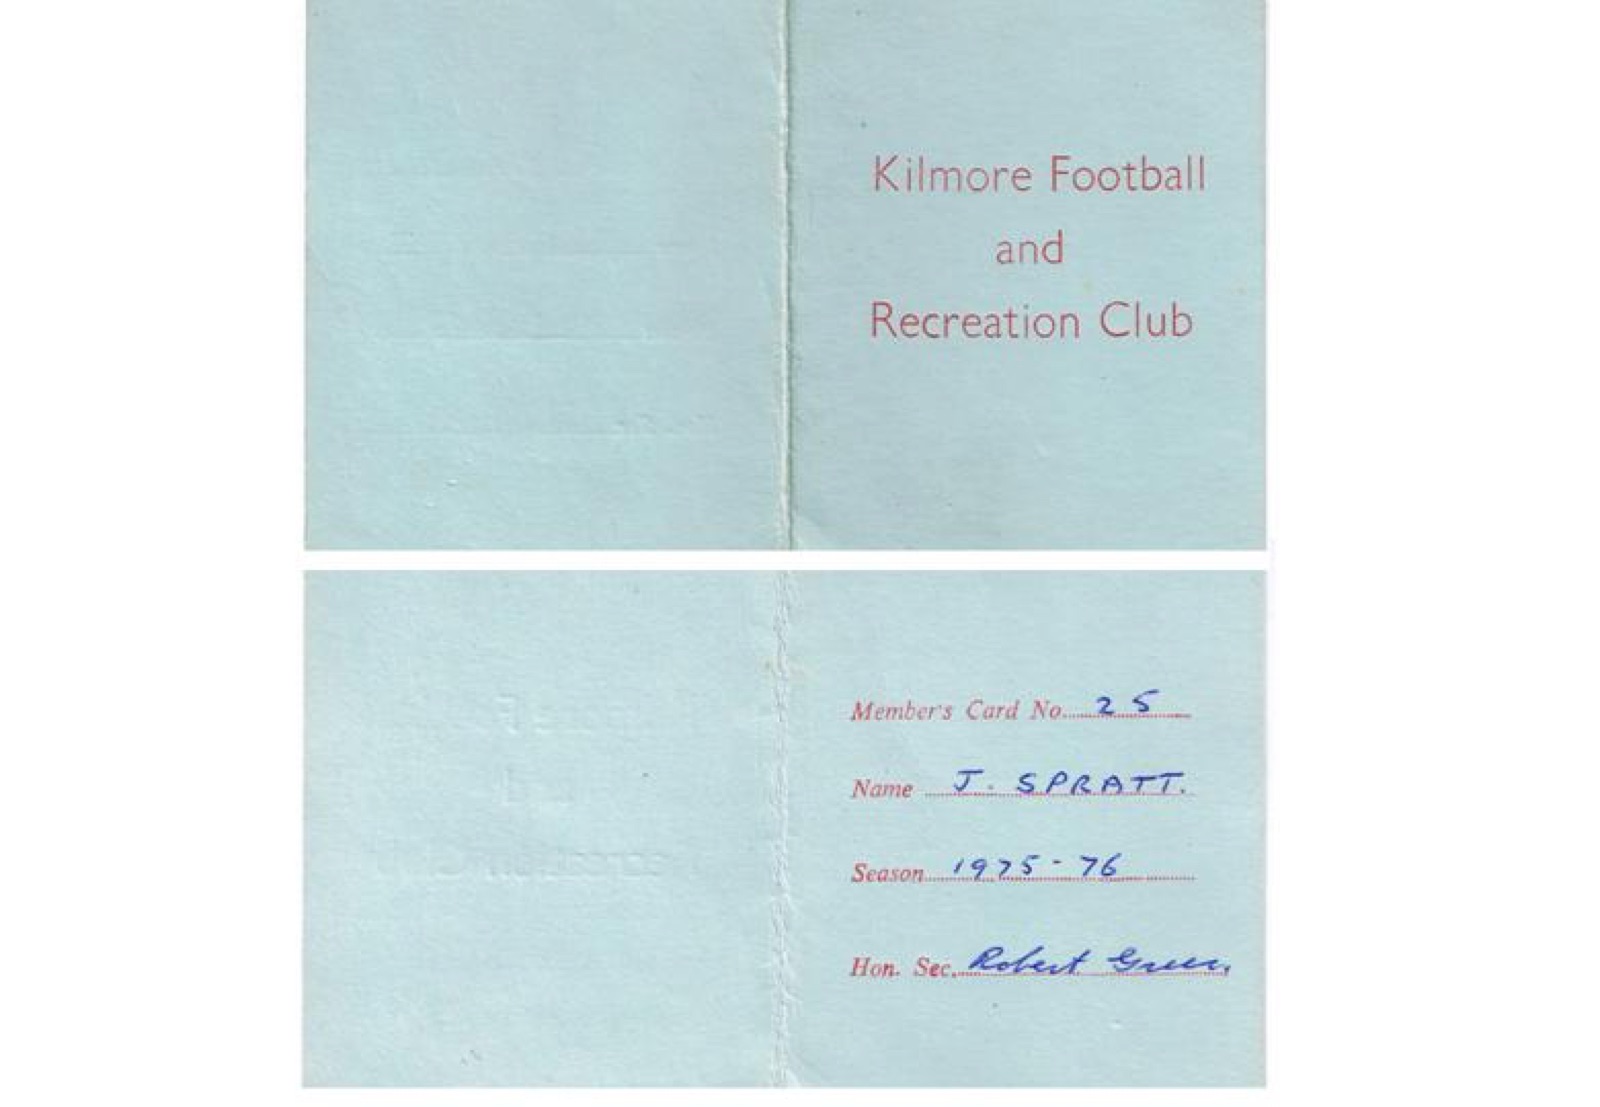 Kilmore Football
and
Recreation Club
Member's Card No. 25
Name J. SPRATT.
Season 1975-76
Hon. Sec. Robert Green.